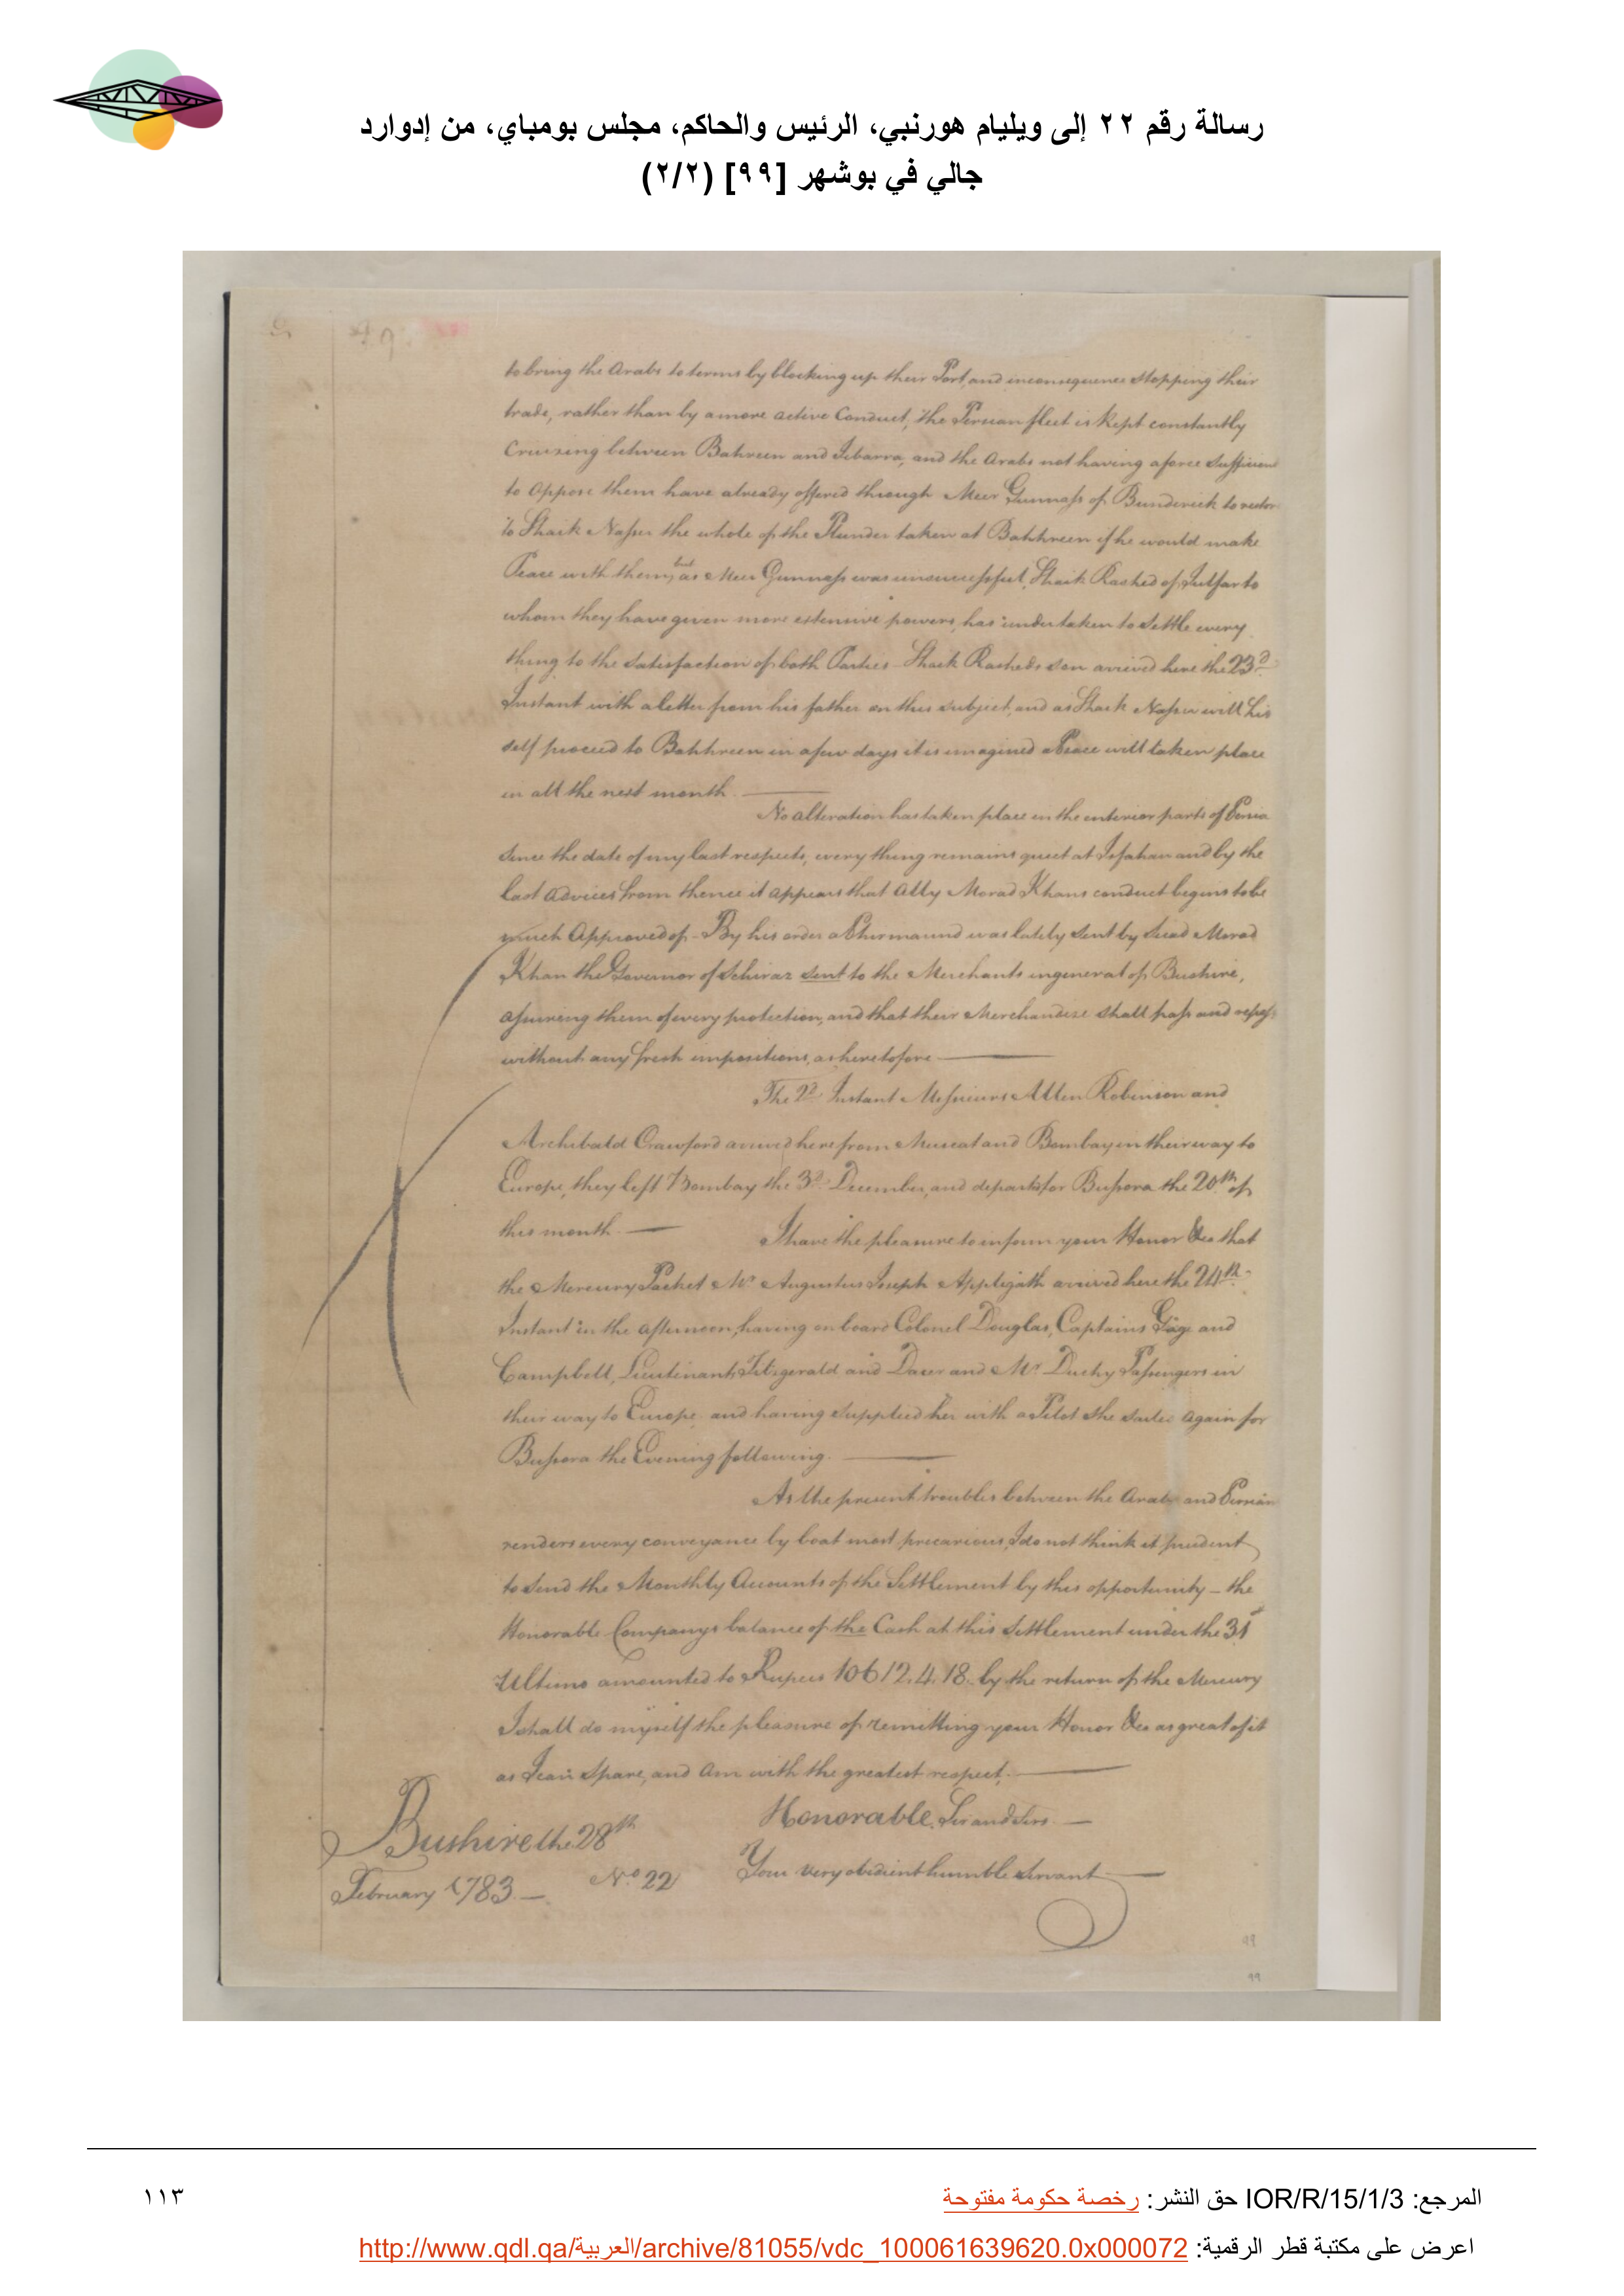 رسالة رقم ٢٢ إلى ويليام هورنبي، الرئيس والحاكم، مجلس بومباي، من إدوارد
جالي في بوشهر [٩٩] (٢/٢)
to bring the Arabs to terms by blocking up their Port and inconsequence stopping their
trade, rather than by a more active Conduct, the Persian fleet is kept constantly
Cruizing between Bahreen and Zebarra, and the Arabs not having a force sufficient
to oppose them have already offered through Meer Gunnass of Bunderick to restore
to Shaik Nasser the whole of the Plunder taken at Bahhreen if he would make
Peace with them, but as Meer Gunnass was unsuccessful, Shaik Rashed of Julfar to
whom they have given more extensive powers, has undertaken to settle every
thing to the satisfaction of both Parties - Shaik Rasheds son arrived here the 23d
Instant with a letter from his father on this subject, and as Shaik Nasser will him
self proceed to Bahhreen in a few days it is imagined a Peace will taken place
in all the next month.
No alteration has taken place in the interior parts of Persia
since the date of my last respects, every thing remains quiet at Isfahan and by the
last advices from thence it appears that Ally Morad Khans conduct begins to be
much Approved of - By his order a Phirmaund was lately sent by Morad
Khan the Governor of Schiraz sent to the Merchants in general of Bushire,
assuring them of every protection, and that their Merchandize shall pass and repass
without any fresh impositions, as heretofore
The 2d Instant Messieurs Allen Robinson and
Archibald Crawford arrived here from Muscat and Bombay in their way to
Europe, they left Bombay the 3d December, and departed for Bussora the 20th of
this month.
I have the pleasure to inform your Honor &ca that
the Mercury Packet Mr Augustus Joseph Applegath arrived here the 24th
Instant in the afternoon, having on board Colonel Douglas, Captains Gage and
Campbell, Lieutenants Fitzgerald and and Mr Passengers in
their way to Europe and having supplied her with a Pilot she sailed again for
Bussora the Evening following.
As the present troubles between the Arabs and Persian
renders every conveyance by boat most precarious, I do not think it prudent
to send the Monthly Accounts of the Settlement by this opportunity - the
Honorable Companys balance of the Cash at this Settlement under the 31st
Ultimo amounted to Rupees 10612.4.18. by the return of the Mercury
I shall do myself the pleasure of remitting your Honor &ca as great of it
as I can spare, and am with the greatest respect.
Honorable, Sir and Sirs
Your very obedient humble Servant
Bushire the 28th
February 1783 -
No. 22
99
99
المرجع: IOR/R/15/1/3 حق النشر: رخصة حكومة مفتوحة
١١٣
اعرض على مكتبة قطر الرقمية: http://www.qdl.qa/العربية/archive/81055/vdc_100061639620.0x000072